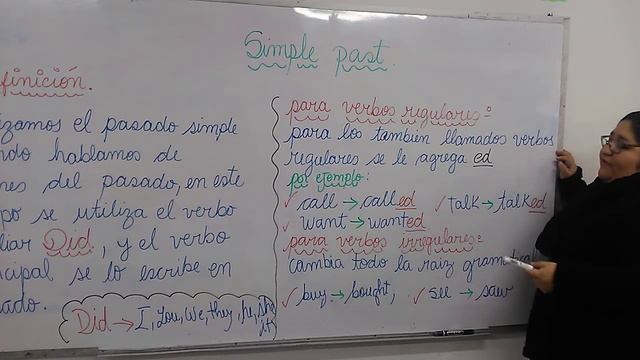 Simple past.
finición.
izamos el pasado simple
ndo hablamos de
nes del pasado, en este
po se utiliza el verbo
liar Did, y el verbo
ncipal se lo escribe en
ado.
Did → I, you, we, they, he, she
it
para verbos regulares:
para los tambien llamados verbos
regulares se le agrega ed
por ejemplo:
✓ call → called ✓ talk → talked
✓ want → wanted
para verbos irregulares:
cambia todo la raiz gramatical
✓ buy → bought, ✓ see → saw